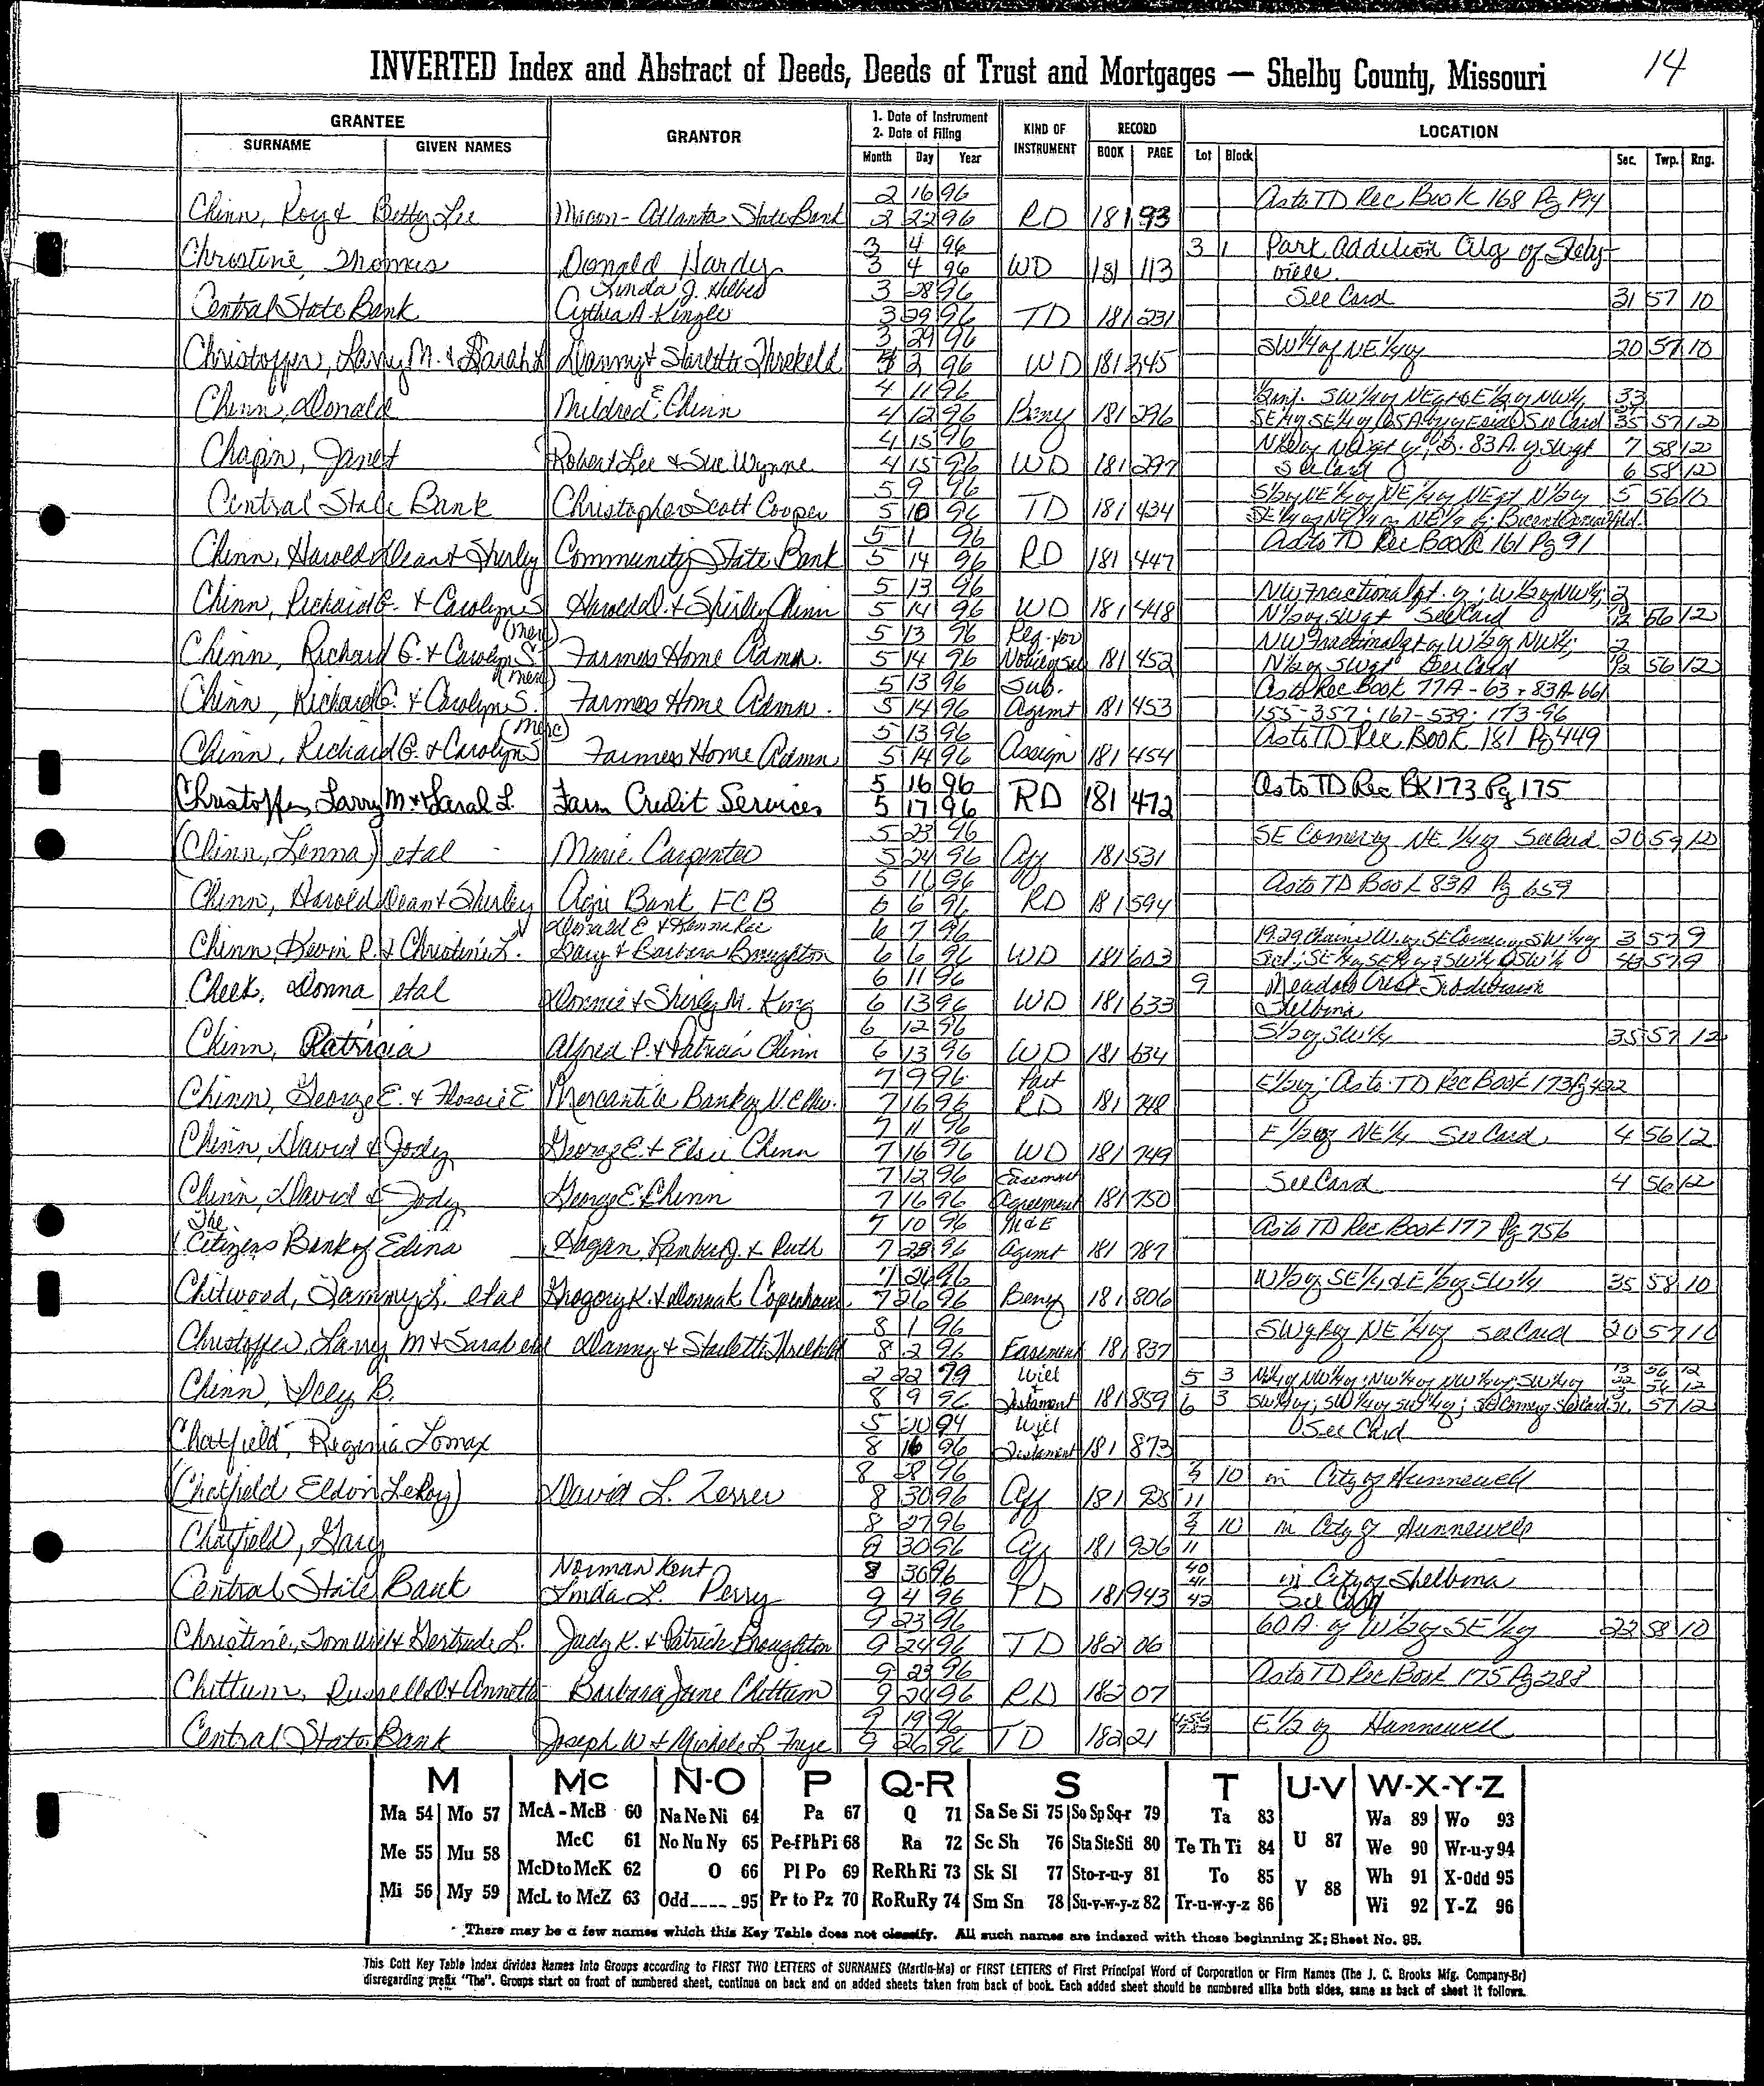 14
INVERTED Index and Abstract of Deeds, Deeds of Trust and Mortgages — Shelby County, Missouri
GRANTEE
SURNAME GIVEN NAMES
GRANTOR
1. Date of Instrument
2. Date of Filing
Month Day Year
KIND OF INSTRUMENT
RECORD
BOOK PAGE
LOCATION
Lot Block Sec. Twp. Rng.
2 16 96 As to TD Rec Book 168 Pg 194
Chinn, Roy & Betty Lee Macon-Atlanta State Bank 2 22 96 RD 181 93
3 4 96 3 1 Park Addition City of Shelby-
Christine, Thomas Donald Hardy 3 4 96 WD 181 113 ville
Linda J. 3 28 96 See Card 31 57 10
Central State Bank 3 29 96 TD 181 231
3 29 96 SW 1/4 of NE 1/4 of 20 57 10
Christoffer, Larry M. & Sarah L Danny & Starletta Threlkeld 4 2 96 WD 181 245
4 11 96 SW 1/4 of 33
Chinn, Donald Mildred E. Chinn 4 12 96 Beny 181 296 See Card 35 57 12
4 15 96 7 58 12
Chapin, Janet Robert Lee & Sue Wynne 4 15 96 WD 181 297 See Card 6 58 12
5 9 96 5 56 10
Central State Bank Christopher Scott Cooper 5 10 96 TD 181 434
5 1 96 As to TD Rec Book 161 Pg 91
Chinn, Harold Dean & Shirley Community State Bank 5 14 96 RD 181 447
5 13 96 NW Fractional pt. of; W 1/2 of NW 1/4; 2
Chinn, Richard G. & Carolyn S Harold D. & Shirley Chinn 5 14 96 WD 181 448 N 1/2 of SW qt See Card 12 56 12
5 13 96 Req. for NW Fractional pt of W 1/2 of NW 1/4; 2
Chinn, Richard G. & Carolyn S. Farmers Home Admn. 5 14 96 181 452 N 1/2 of SW qt See Card 12 56 12
5 13 96 Sub. As to Rec Book 77A-63; 83A-661
Chinn, Richard G. & Carolyn S. Farmers Home Admn. 5 14 96 Agrmt 181 453 155-357; 167-539; 173-96
5 13 96 As to TD Rec Book 181 Pg 449
Chinn, Richard G. & Carolyn S Farmers Home Admn 5 14 96 Assign 181 454
5 16 96 As to TD Rec BK 173 Pg 175
Christoffer, Larry M & Sarah L. Farm Credit Services 5 17 96 RD 181 472
5 23 96 SE Corner of NE 1/4 of See Card 20 59 12
(Chinn, Lenna) etal Marie Carpenter 5 24 96 Aff 181 531
5 11 96 As to TD Book 83A Pg 659
Chinn, Harold Dean & Shirley Agri Bank FCB 6 6 96 RD 181 594
6 7 96 19.29 Chains W. of SE Corner of SW 1/4 of 3 57 9
Chinn, Kevin R. & Christine L. Gary & Barbara Broughton 6 6 96 WD 181 603 57 9
6 11 96 9 Meadow Crest Subdivision
Cheek, Donna etal Donnie & Shirley M. King 6 13 96 WD 181 633 Shelbina
6 12 96 S 1/2 of SW 1/4 35 57 12
Chinn, Patricia Alfred P. & Patricia Chinn 6 13 96 WD 181 634
7 9 96 Part E 1/2 of; As to TD Rec Book 173 Pg 422
Chinn, George E. & Flossie E Mercantile Bank of 7 16 96 RD 181 748
7 11 96 E 1/2 of NE 1/4 See Card 4 56 12
Chinn, David & Jody George E. & Elsie Chinn 7 16 96 WD 181 749
7 12 96 Easement See Card 4 56 12
Chinn, David & Jody George E. Chinn 7 16 96 Agreement 181 750
The 7 10 96 M & E As to TD Rec Book 177 Pg 756
Citizens Bank of Edina Hagan, & Ruth 7 23 96 Agrmt 181 787
7 26 96 W 1/2 of SE 1/4 & E 1/2 of SW 1/4 35 58 10
Chitwood, Tammy L. etal Gregory K. & Copenhaver 7 26 96 Beny 181 806
8 1 96 NE 1/4 of See Card 20 57 10
Christoffer, Larry M & Sarah etal Danny & Starletta Threlkeld 8 2 96 Easement 181 837
2 22 79 Will 5 3
Chinn, B. 8 9 96 Testament 181 859 6 3 57 12
5 20 94 Will See Card
Chatfield, Regina Lomax 8 16 96 Testament 181 873
8 28 96 10 in City of Hunnewell
(Chatfield Eldon LeRoy) David L. 8 30 96 Aff 181 925 11
8 27 96 10 in City of Hunnewell
Chatfield, Gary 8 30 96 Aff 181 926 11
Norman Kent 8 30 96 40 in City of Shelbina
Central State Bank Linda L. Perry 9 4 96 TD 181 943 41 42 See Card
9 23 96 60 A. of W 1/2 of SE 1/4 of 22 58 10
Christine, Tom Will & Gertrude L. Judy K. & Patrick Broughton 9 24 96 TD 182 06
9 23 96 As to TD Rec Book 175 Pg 288
Chittum, Russell D & Annetta Barbara Jane Chittum 9 24 96 RD 182 07
9 19 96 E 1/2 of Hunnewell
Central State Bank Joseph W & Michele L Frye 9 26 96 TD 182 21
M Mc N-O P Q-R S T U-V W-X-Y-Z
Ma 54 Mo 57 McA - McB 60 Na Ne Ni 64 Pa 67 Q 71 Sa Se Si 75 So Sp Sq-r 79 Ta 83 Wa 89 Wo 93
Me 55 Mu 58 McC 61 No Nu Ny 65 Pe-f Ph Pi 68 Ra 72 Sc Sh 76 Sta Ste Sti 80 Te Th Ti 84 U 87 We 90 Wr-u-y 94
McD to McK 62 O 66 Pl Po 69 Re Rh Ri 73 Sk Sl 77 Sto-r-u-y 81 To 85 Wh 91 X-Odd 95
Mi 56 My 59 McL to McZ 63 Odd 95 Pr to Pz 70 Ro Ru Ry 74 Sm Sn 78 Su-v-w-y-z 82 Tr-u-w-y-z 86 V 88 Wi 92 Y-Z 96
There may be a few names which this Key Table does not classify. All such names are indexed with those beginning X; Sheet No. 95.
This Cott Key Table Index divides Names into Groups according to FIRST TWO LETTERS of SURNAMES (Martin-Ma) or FIRST LETTERS of First Principal Word of Corporation or Firm Names (The J. C. Brooks Mfg. Company-Br)
disregarding prefix "The". Groups start on front of numbered sheet, continue on back and on added sheets taken from back of book. Each added sheet should be numbered alike both sides, same as back of sheet it follows.